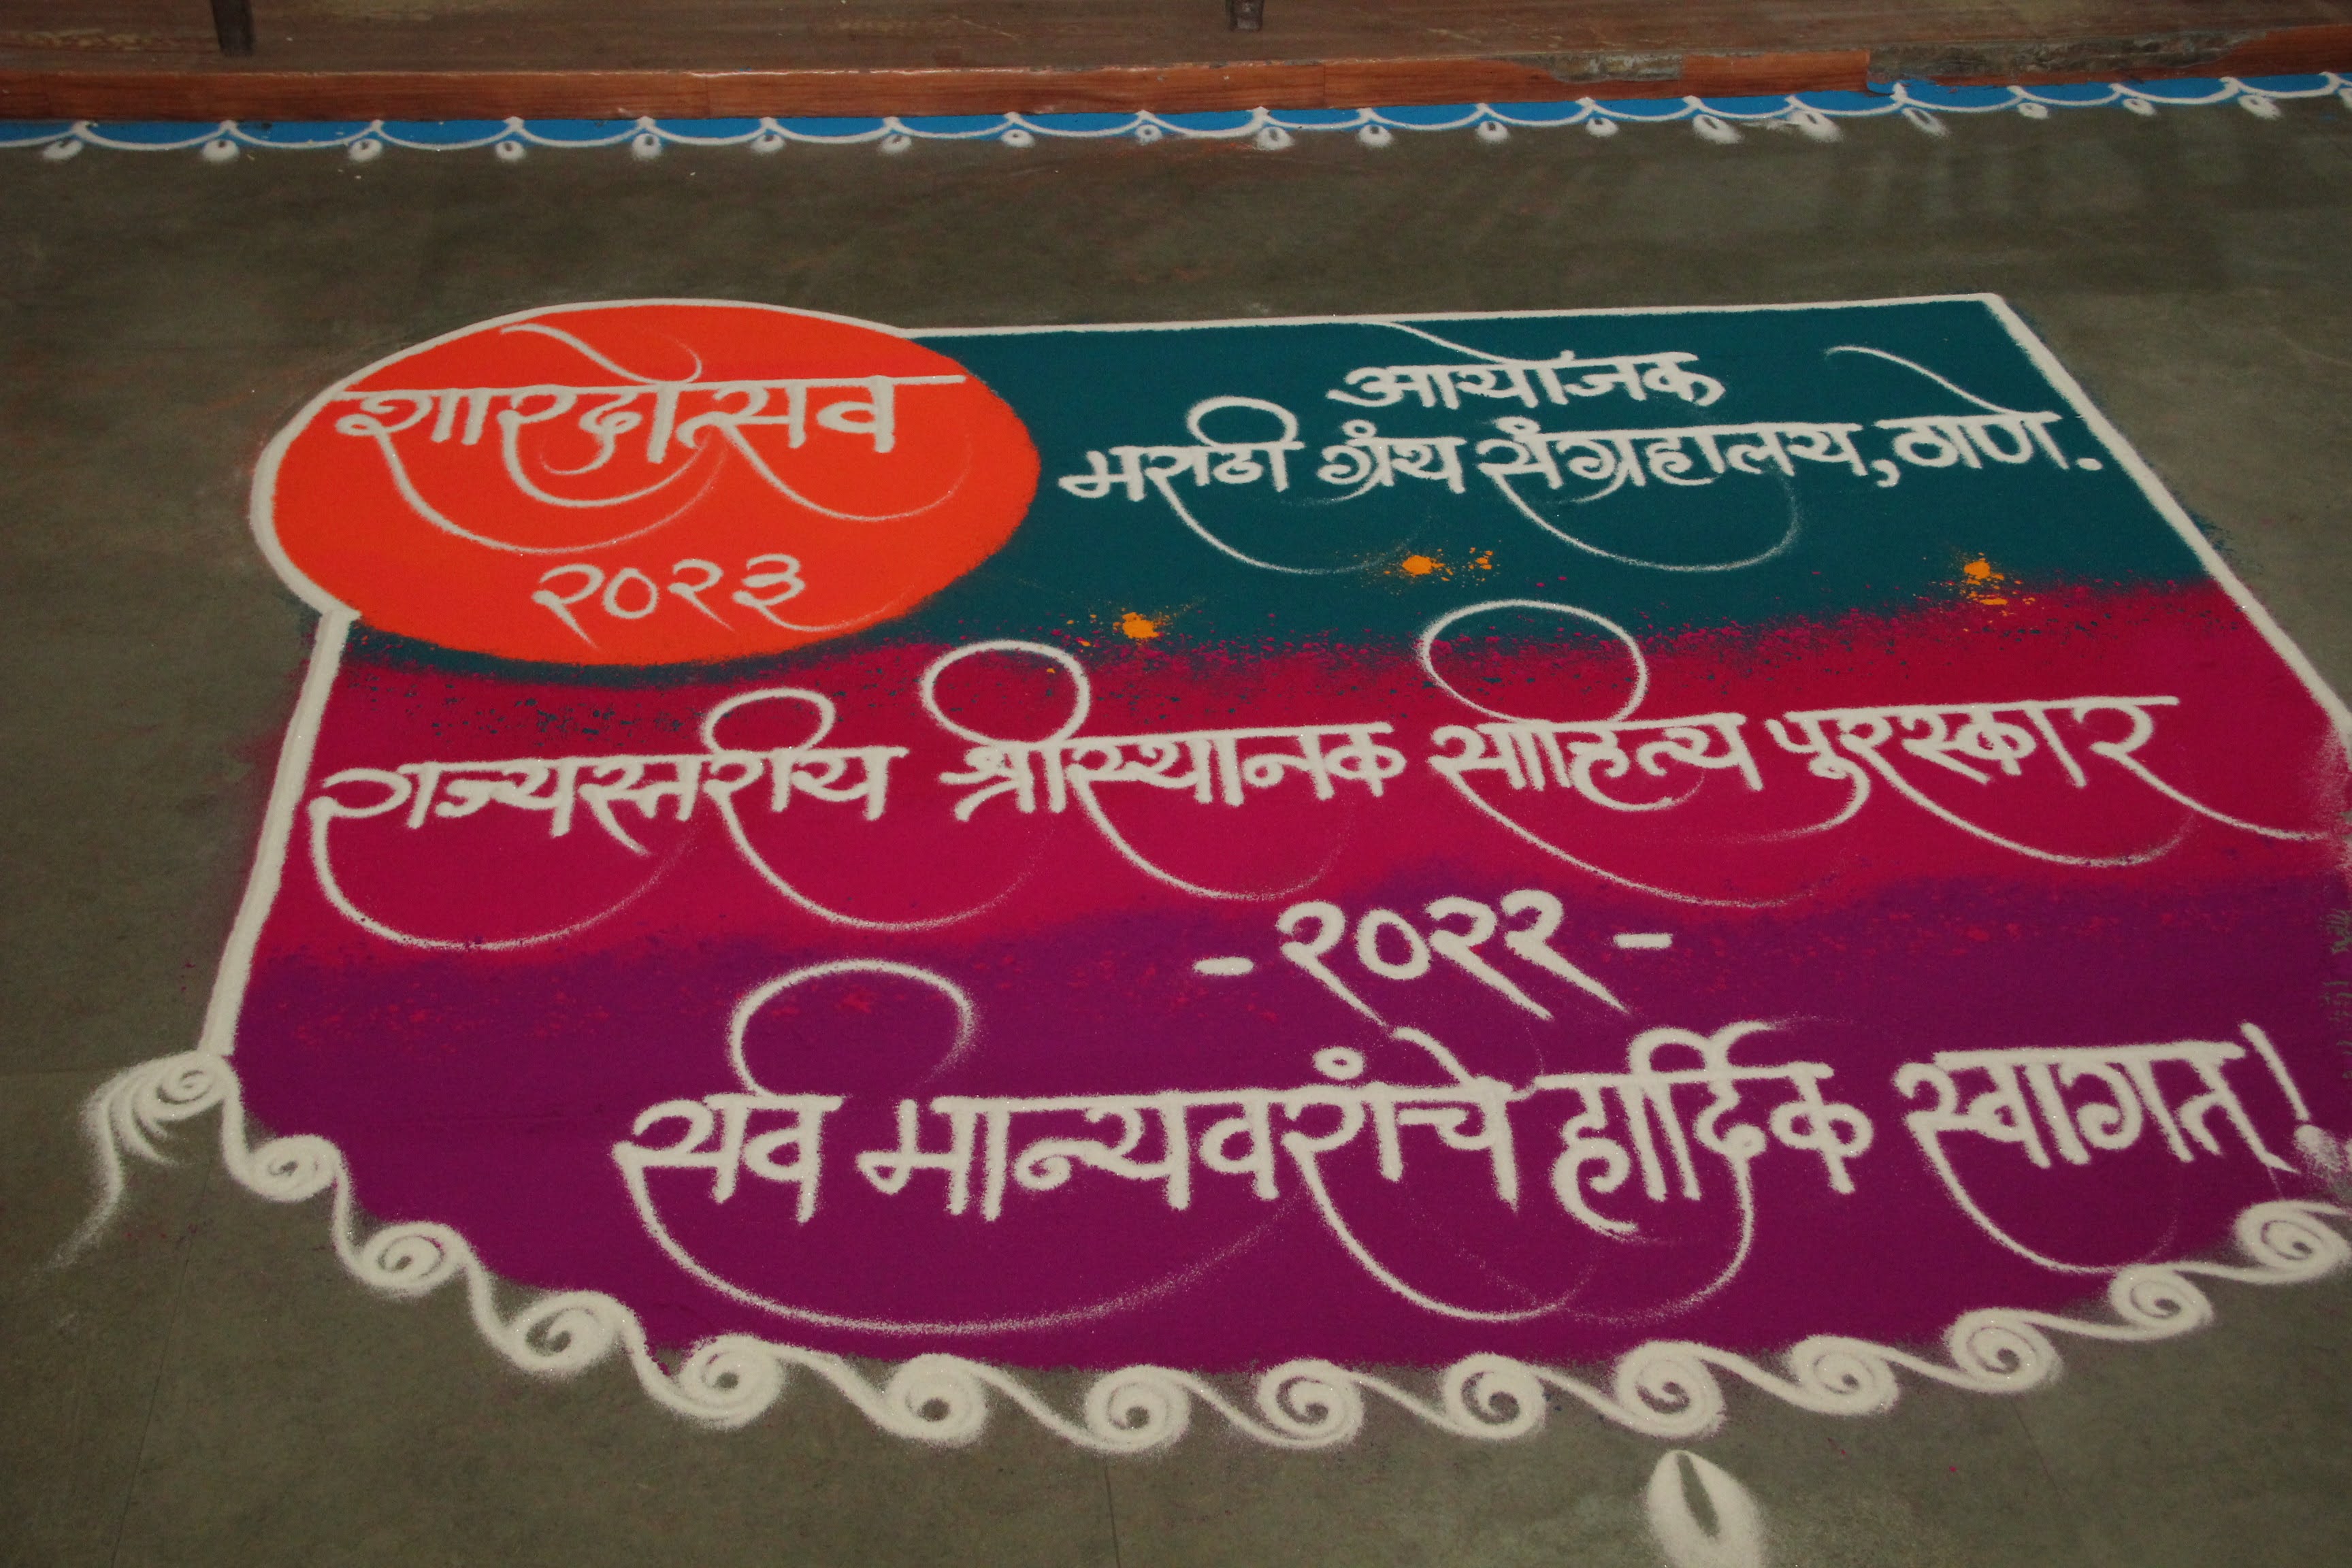 शारदोत्सव
२०२३
आयोजक
मराठी ग्रंथ संग्रहालय, ठाणे.
राज्यस्तरीय श्रीस्थानक साहित्य पुरस्कार
- २०२२ -
सर्व मान्यवरांचे हार्दिक स्वागत!